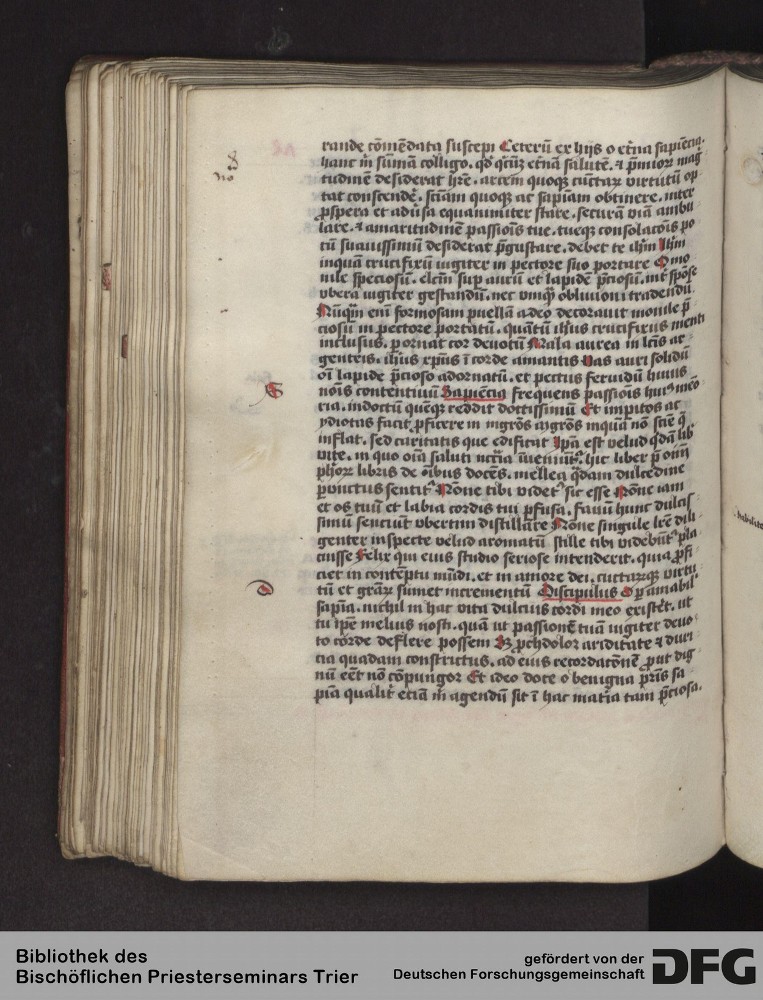 8
no
rande cōmēdata suscepi Ceterū ex hijs o etna sapiēcia.
hanc m̄ sūmā colligo. qd̄ qcūqꝫ etnā salutē. ⁊ p̄mioꝝ mag
tudinē desiderat hr̄e. arcem quoqꝫ cūctaꝝ virtutū op
tat conscende᷑. sciam quoqꝫ ac sapiam obtinere. inter
ꝓspera et adūsa equanimiter stare. securā viā ambu
lare. ⁊ amaritudinē passiōis tue. tueqꝫ consolacōis po
tū suauissimū desiderat p̄gustare. debet te ihm̄ Ihm̄
inquā crucifixū iugiter in pectore suo portare O mo
nile speciosū. elcm̄ sup aurū et lapidē p̄ciosū. int̄ spōse
vbera iugiter gestandū. nec vmqꝫ obliuioni tradendū
Nūq̄m eni formosam puellā adeo decorauit monile p̄
ciosū in pectore portatū. quātū ihus crucifixus menti
inclusus. pornat cor deuotū Mala aurea in lc̄is ar
genteis. ihus xpūs ī corde amantis Vas auri solidū
oī lapide p̄cioso adornatū. et pectus feruidū huius
nōis contentiuū Sapiēcia frequens passiois hui9 meō
ria. indoctū quēqꝫ reddit doctissimū Et impitos ac
ydiotas facit ꝓficere in mḡros mḡros inquā nō sciē q̄
inflat. sed caritatis que edificat Ipā est velud qdā lib
vite. in quo oīa saluti nccīa īueniūt᷑. hic liber p̄ oīm
phōꝝ libris de oībus docēs. mellea qdam dulcedine
punctus sentit᷑ Nōne tibi videt᷑ sic esse Nōne iam
et os tuū et labia cordis tui ꝑfusa. fauū hunc dulcis
simū senciūt vbertim distillare Nōne singule lr̄e dili
genter inspecte velud aromatū stille tibi videbūt᷑ pla
cuisse Felix qui eius studio seriose intenderit. quia ꝓfi
ciet in contēptu mūdi. et in amore dei. cūctarūqꝫ virtu
tū et gr̄aꝝ sumet incrementū Discipulus O p amabil̄
sapia. nichil in hac vita dulcius cordi meo existet. ut
tu ipē melius nosti. quā ut passionē tuā iugiter deuo
to corde deflere possem Sꝫ ꝓchdolor ariditate ⁊ duri
cia quadam constrictus. ad eius recordatōnē ꝓut dig
nū eēt nō cōpungor Et ideo doce o benigna pr̄is sa
pia qualit᷑ eciā m̄ agendū sit ī hac matia tam p̄ciosa.
S
D
Bibliothek des
Bischöflichen Priesterseminars Trier
gefördert von der
Deutschen Forschungsgemeinschaft
DFG